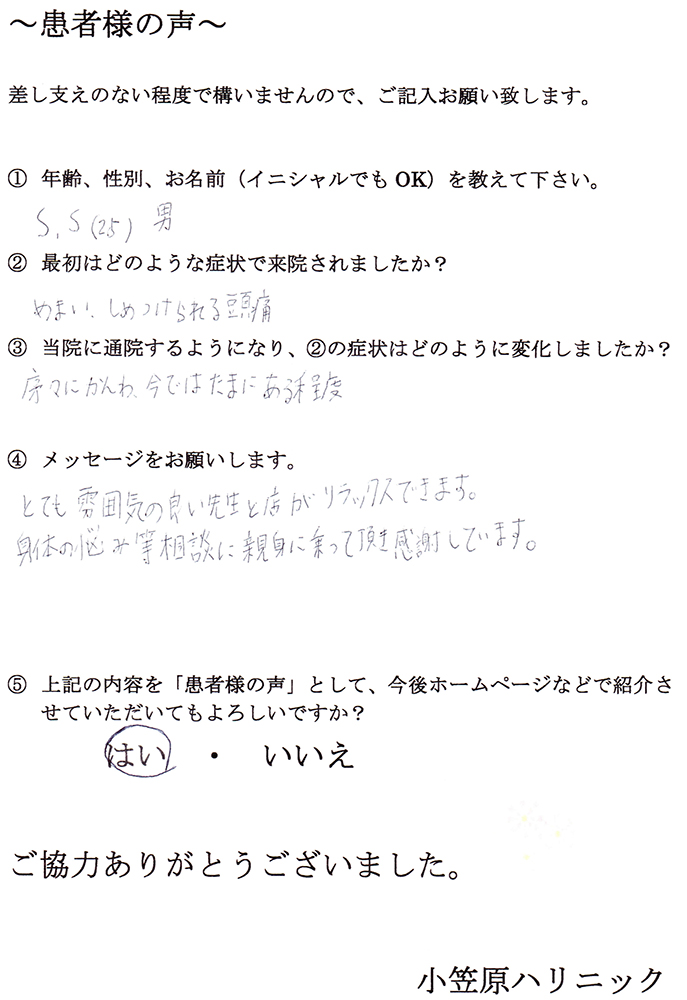 ～患者様の声～
差し支えのない程度で構いませんので、ご記入お願い致します。
① 年齢、性別、お名前（イニシャルでも OK）を教えて下さい。
S.S (25) 男
② 最初はどのような症状で来院されましたか？
めまい、しめつけられる頭痛
③ 当院に通院するようになり、②の症状はどのように変化しましたか？
序々にかんわ、今ではたまにある程度
④ メッセージをお願いします。
とても雰囲気の良い先生と店がリラックスできます。
身体の悩み等相談に親身に乗って頂き感謝しています。
⑤ 上記の内容を「患者様の声」として、今後ホームページなどで紹介さ
せていただいてもよろしいですか？
はい ・ いいえ
ご協力ありがとうございました。
小笠原ハリニック